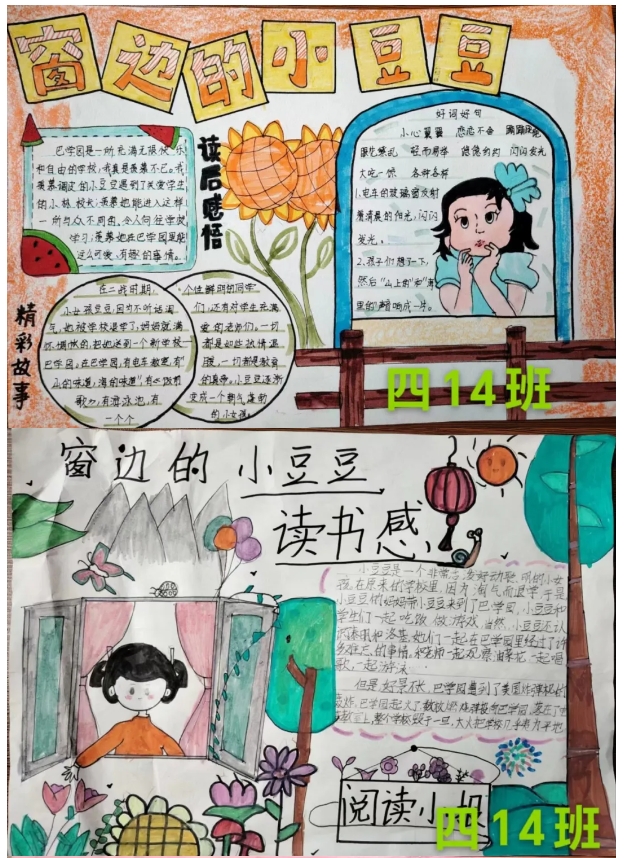 窗边的小豆豆
巴学园是一所充满无限快乐
和自由的学校,我真是羡慕不已。我
羡慕调皮的小豆豆遇到了关爱学生
的小林校长;羡慕她能进入这样
一所与众不同的、令人向往学校
学习;羡慕她在巴学园里
这么可爱、有趣的事情。
读后感悟
好词好句
小心翼翼 恋恋不舍
轻而易举 闪闪发光
大吃一惊 各种各样
1.电车的玻璃窗反射
着清晨的阳光,闪闪
发光。
2.孩子们想了一下,
然后“山上的”和“海
里的”声响成一片。
精彩故事
在二战时期,
小女孩豆豆,因为不听话淘
气,她被学校退学了,妈妈就满
怀惆怅的,把她送到一个新学校—
巴学园。在巴学园,有电车教室,有“
山的味道,海的味道”,有《饭前
歌》,有游泳池,有
一个个
个性鲜明的同学
们,还有对学生充满
爱的老师们,一切
都是如此热情温
暖,一切都是教育
的真命。小豆豆逐渐
变成一个朝气蓬勃
的小女孩。
四14班
窗边的小豆豆
读书感
小豆豆是一个非常
孩,在原来的学校里,因为淘气而退学,于是
小豆豆的妈妈带小豆豆来到了巴学园,小豆豆和
学生们一起吃饭、做游戏,当然,小豆豆还认
她们一起在巴学园里经过了许
多难忘的事情。和老师一起观察油菜花,一起唱
歌,一起游泳…
但是好景不长,巴学园遭到了美国炸弹
轰炸,巴学园起火了
整个学校毁于一旦,大火把学校几乎夷为平地
阅读小报
四14班